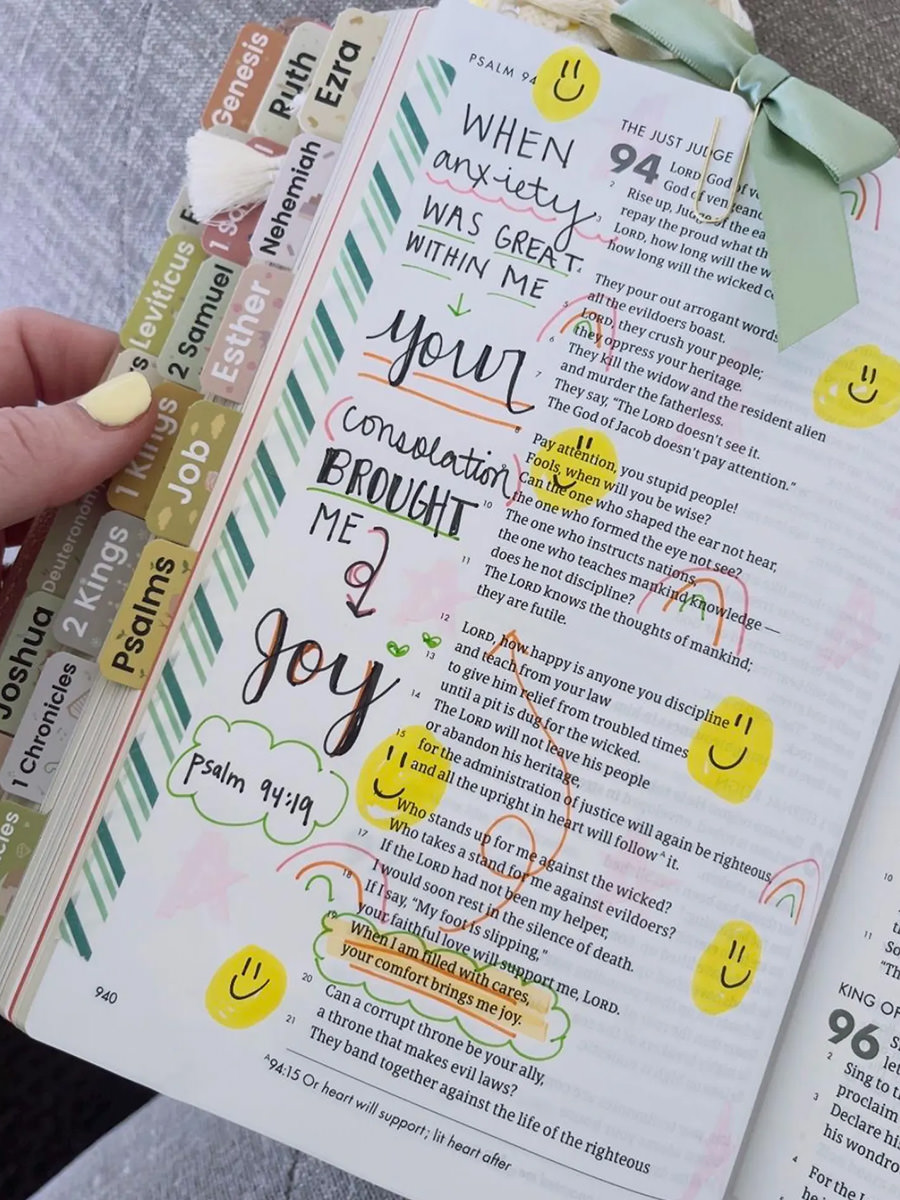 Genesis
Ruth
Ezra
Nehemiah
Leviticus
2 Samuel
Esther
1 Kings
Job
Deuteronomy
2 Kings
Psalms
Joshua
1 Chronicles
PSALM 94
WHEN
anxiety
WAS GREAT
WITHIN ME
your
consolation
BROUGHT
ME
Joy
psalm 94:19
940
THE JUST JUDGE
94 LORD, God of
God of
2 Rise up, Judge of the
repay the proud what
3 LORD, how long will the
how long will the wicked
They pour out arrogant words
all the evildoers boast.
5 LORD, they crush your people;
they oppress your heritage.
6 They kill the widow and the resident alien
and murder the fatherless.
7 They say, "The LORD doesn't see it.
The God of Jacob doesn't pay attention."
8 Pay attention, you stupid people!
Fools, when will you be wise?
Can the one who shaped the ear not hear,
the one who formed the eye not see?
10 The one who instructs nations,
the one who teaches mankind knowledge —
does he not discipline?
11 The LORD knows the thoughts of mankind;
they are futile.
12 LORD, how happy is anyone you discipline
and teach from your law
13 to give him relief from troubled times
until a pit is dug for the wicked.
14 The LORD will not leave his people
or abandon his heritage,
15 for the administration of justice will again be righteous,
and all the upright in heart will follow ᴬ it.
Who stands up for me against the wicked?
Who takes a stand for me against evildoers?
17 If the LORD had not been my helper,
I would soon rest in the silence of death.
18 If I say, "My foot is slipping,"
your faithful love will support me, LORD.
19 When I am filled with cares,
your comfort brings me joy.
20 Can a corrupt throne be your ally,
a throne that makes evil laws?
21 They band together against the life of the righteous
ᴬ 94:15 Or heart will support; lit heart after
10
11
KING OF
96
2 Sing to
3 proclaim
Declare
his
4 For the